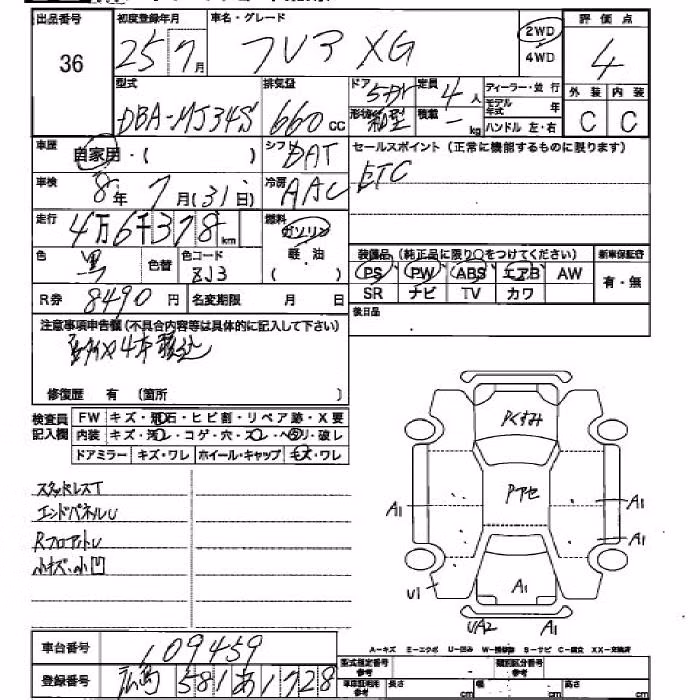 出品番号 初度登録年月 車名・グレード 評価点
36 25 7月 フレア XG 2WD 4WD 4
型式 排気量 ドア 5ドア 定員 4人 ディーラー・並行 外装 内装
DBA-MJ34S 660cc 形状 箱型 積載 - kg モデル年式 年 ハンドル 左・右 C C
車歴 自家用・( ) シフト DAT セールスポイント(正常に機能するものに限ります)
車検 8年7月(31日) 冷房 AAC ETC
走行 4万6千378km 燃料 ガソリン
色 黒 色替 色コード ZJ3 軽・油 ( ) 装備品(純正品に限り○をつけてください) 新車保証書
PS PW ABS エアB AW 有・無
R券 8490円 名変期限 月 日 SR ナビ TV カワ
後日品
注意事項申告欄(不具合内容等は具体的に記入して下さい)
修復歴 有 (箇所 )
検査員記入欄 FW キズ・飛石・ヒビ割・リペア跡・X要
内装 キズ・汚レ・コゲ・穴・スレ・ヘタリ・破レ
ドアミラー キズ・ワレ ホイール・キャップ キズ・ワレ
スタッドレスT
エンドパネルU
RフロアットU
小キズ・小凹
Pくすみ
Pアセ
A1
A1
A1
A1
U1
UA2
A1
A-キズ E-エクボ U-凹み W-補修跡 S-サビ C-腐食 XX-交換済
車台番号 109459
登録番号 広島 581 あ 1728
型式指定番号 参考 - 類別区分番号 参考 -
車庫証明用 参考 長さ cm 幅 cm 高さ cm